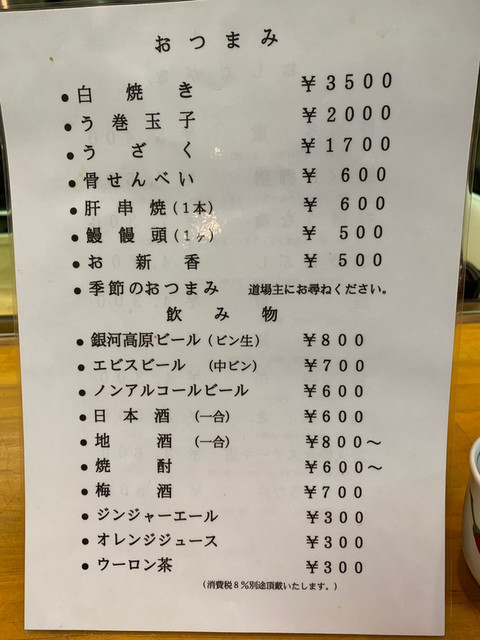 おつまみ
●白焼き ￥3500
●う巻玉子 ￥2000
●うざく ￥1700
●骨せんべい ￥600
●肝串焼(1本) ￥600
●鰻饅頭(1ヶ) ￥500
●お新香 ￥500
●季節のおつまみ 道場主にお尋ねください。
飲み物
●銀河高原ビール(ビン生) ￥800
●エビスビール (中ビン) ￥700
●ノンアルコールビール ￥600
●日本酒 (一合) ￥600
●地酒 (一合) ￥800～
●焼酎 ￥600～
●梅酒 ￥700
●ジンジャーエール ￥300
●オレンジジュース ￥300
●ウーロン茶 ￥300
(消費税8%別途頂戴いたします。)